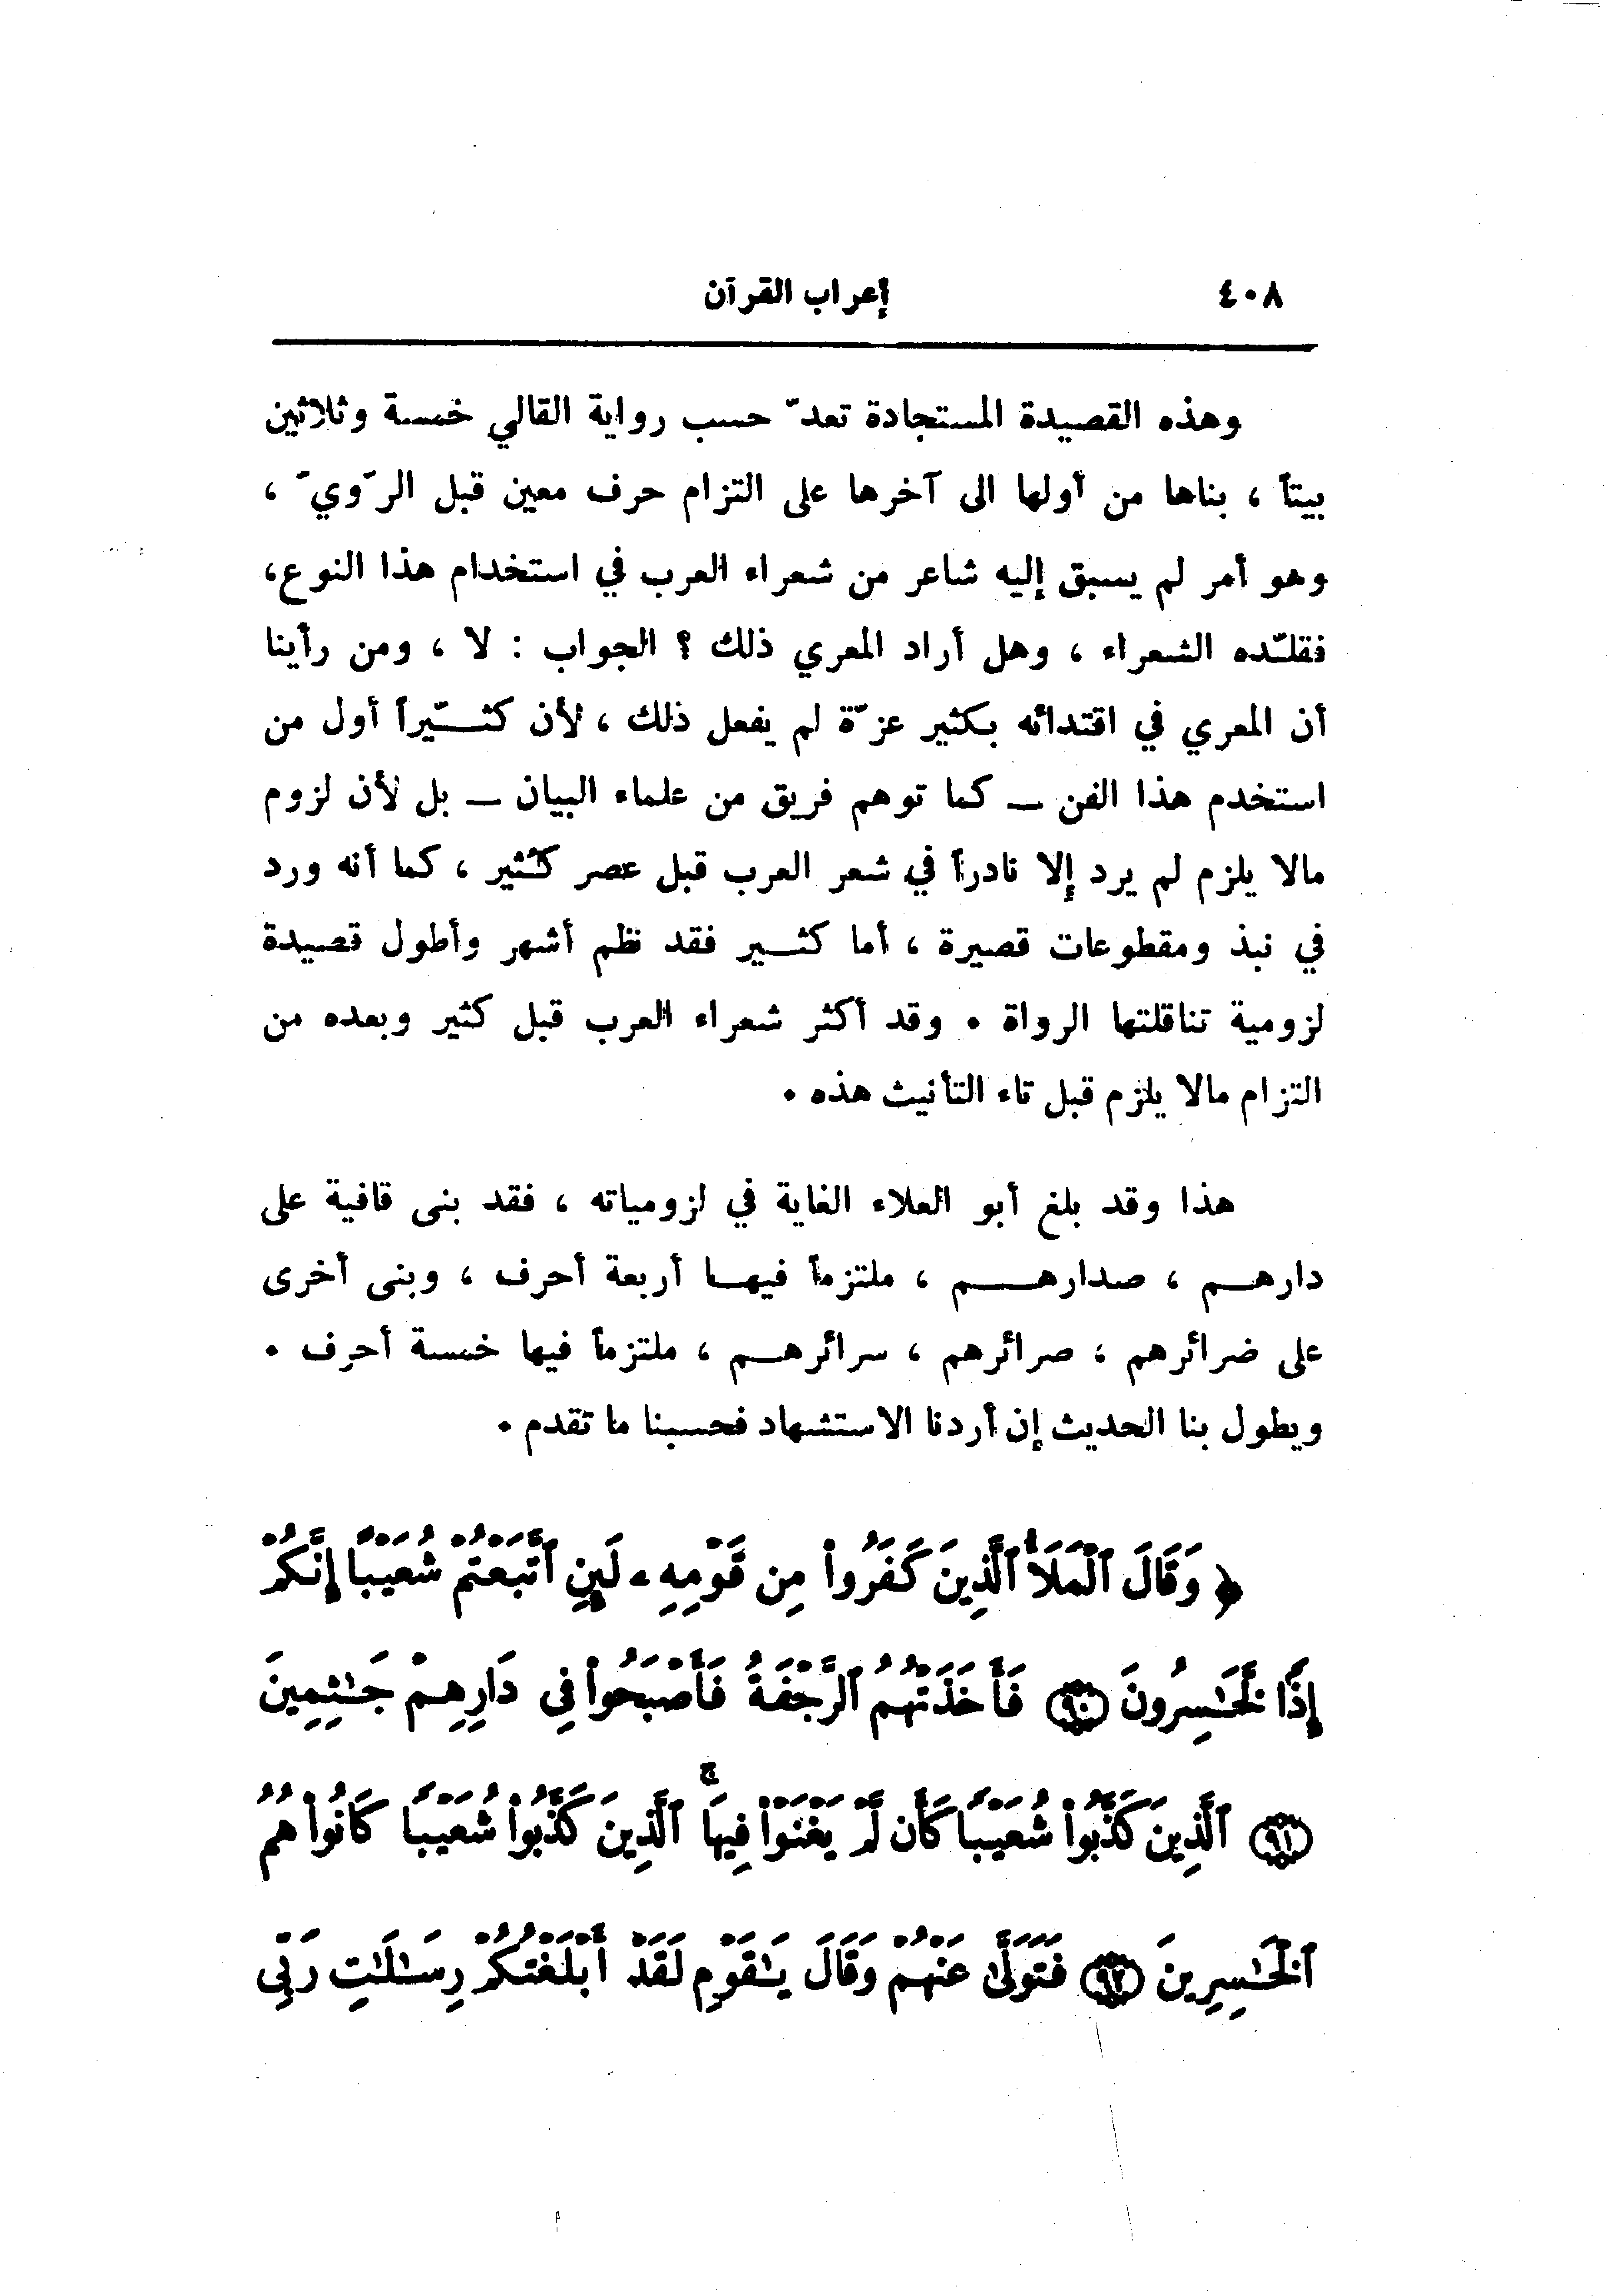 ٤٠٨ إعراب القرآن
وهذه القصيدة المستجادة تعدّ حسب رواية القالي خمسة وثلاثين
بيتاً ، بناها من أولها الى آخرها على التزام حرف معين قبل الرّويّ ،
وهو أمر لم يسبق إليه شاعر من شعراء العرب في استخدام هذا النوع،
فقلّده الشعراء ، وهل أراد المعري ذلك ؟ الجواب : لا ، ومن رأينا
أن المعري في اقتدائه بكثير عزّة لم يفعل ذلك ، لأن كثـيّراً أول من
استخدم هذا الفن ــ كما توهم فريق من علماء البيان ــ بل لأن لزوم
مالا يلزم لم يرد إلا نادراً في شعر العرب قبل عصر كُثير ، كما أنه ورد
في نبذ ومقطوعات قصيرة ، أما كثـير فقد نظم أشهر وأطول قصيدة
لزومية تناقلتها الرواة . وقد أكثر شعراء العرب قبل كثير وبعده من
التزام مالا يلزم قبل تاء التأنيث هذه .
هذا وقد بلغ أبو العلاء الغاية في لزومياته ، فقد بنى قافية على
دارهـم ، صدارهـم ، ملتزماً فيهـا أربعة أحرف ، وبنى أخرى
على ضرائرهم ، صرائرهم ، سرائرهـم ، ملتزماً فيها خمسة أحرف .
ويطول بنا الحديث إن أردنا الاستشهاد فحسبنا ما تقدم .
﴿ وَقَالَ ٱلْمَلَأُ ٱلَّذِينَ كَفَرُوا۟ مِن قَوْمِهِۦ لَئِنِ ٱتَّبَعْتُمْ شُعَيْبًا إِنَّكُمْ
إِذًا لَّخَـٰسِرُونَ ﴿٩٠﴾ فَأَخَذَتْهُمُ ٱلرَّجْفَةُ فَأَصْبَحُوا۟ فِى دَارِهِمْ جَـٰثِمِينَ
﴿٩١﴾ ٱلَّذِينَ كَذَّبُوا۟ شُعَيْبًا كَأَن لَّمْ يَغْنَوْا۟ فِيهَا ۚ ٱلَّذِينَ كَذَّبُوا۟ شُعَيْبًا كَانُوا۟ هُمُ
ٱلْخَـٰسِرِينَ ﴿٩٢﴾ فَتَوَلَّىٰ عَنْهُمْ وَقَالَ يَـٰقَوْمِ لَقَدْ أَبْلَغْتُكُمْ رِسَـٰلَـٰتِ رَبِّى